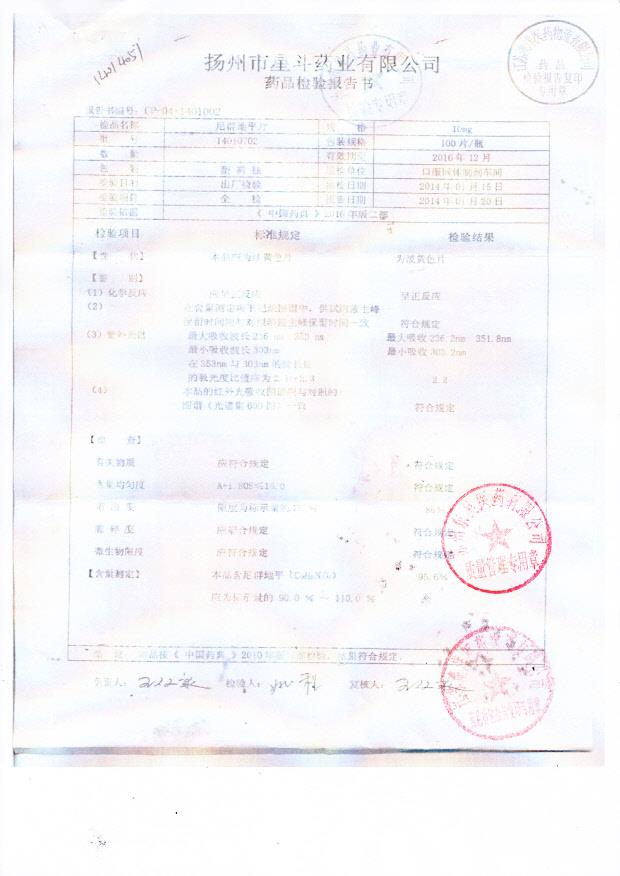 1401051
扬州市星斗药业有限公司
药品检验报告书
报告书编号：CP-04-1401002
检品名称 尼群地平片 规 格 10mg
批 号 14010702 包装规格 100片/瓶
数 量 有效期至 2016年12月
包 装 塑料瓶 送检单位 口服固体制剂车间
检验目的 出厂检验 送检日期 2014年01月15日
检验项目 全 检 报告日期 2014年01月20日
检验依据 《中国药典》2010年版二部
检验项目 标准规定 检验结果
【性 状】 本品应为淡黄色片 为淡黄色片
【鉴 别】
（1）化学反应 应呈正反应 呈正反应
（2） 在含量测定项下记录的图谱中，供试品溶液主峰
保留时间应与对照品溶液主峰保留时间一致 符合规定
（3）紫外光谱 最大吸收波长236 nm 353 nm 最大吸收 236.2nm 351.8nm
最小吸收波长303nm 最小吸收 303.2nm
在353nm与303nm的波长处
的吸光度比值应为2.1-2.3 2.2
（4） 本品的红外光吸收图谱应与对照的
图谱（光谱集600图）一致 符合规定
【检 查】
有关物质 应符合规定 符合规定
含量均匀度 A+1.80S≤15.0 符合规定
溶出度 限度为标示量的 % 86%
脆碎度 应符合规定 符合规定
微生物限度 应符合规定 符合规定
【含量测定】 本品含尼群地平 95.6%
应为标示量的 90.0 % ～ 110.0 %
结 论： 本品按《中国药典》2010年版 检验，结果符合规定。
负责人： 检验人： 复核人：
药品
检验报告复印
专用章
质量管理专用章